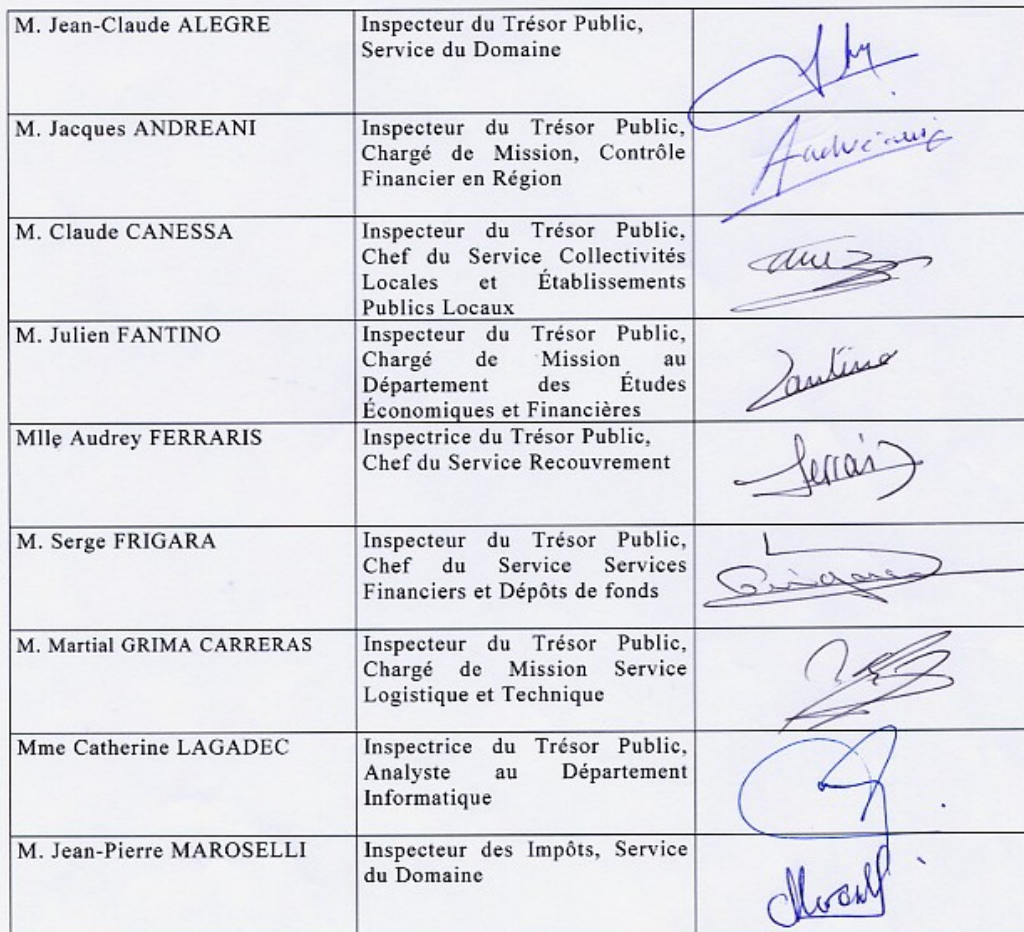 M. Jean-Claude ALEGRE
Inspecteur du Trésor Public,
Service du Domaine
M. Jacques ANDREANI
Inspecteur du Trésor Public,
Chargé de Mission, Contrôle
Financier en Région
Andreani
M. Claude CANESSA
Inspecteur du Trésor Public,
Chef du Service Collectivités
Locales et Établissements
Publics Locaux
M. Julien FANTINO
Inspecteur du Trésor Public,
Chargé de Mission au
Département des Études
Économiques et Financières
Fantino
Mlle Audrey FERRARIS
Inspectrice du Trésor Public,
Chef du Service Recouvrement
Ferraris
M. Serge FRIGARA
Inspecteur du Trésor Public,
Chef du Service Services
Financiers et Dépôts de fonds
Frigara
M. Martial GRIMA CARRERAS
Inspecteur du Trésor Public,
Chargé de Mission Service
Logistique et Technique
Mme Catherine LAGADEC
Inspectrice du Trésor Public,
Analyste au Département
Informatique
M. Jean-Pierre MAROSELLI
Inspecteur des Impôts, Service
du Domaine